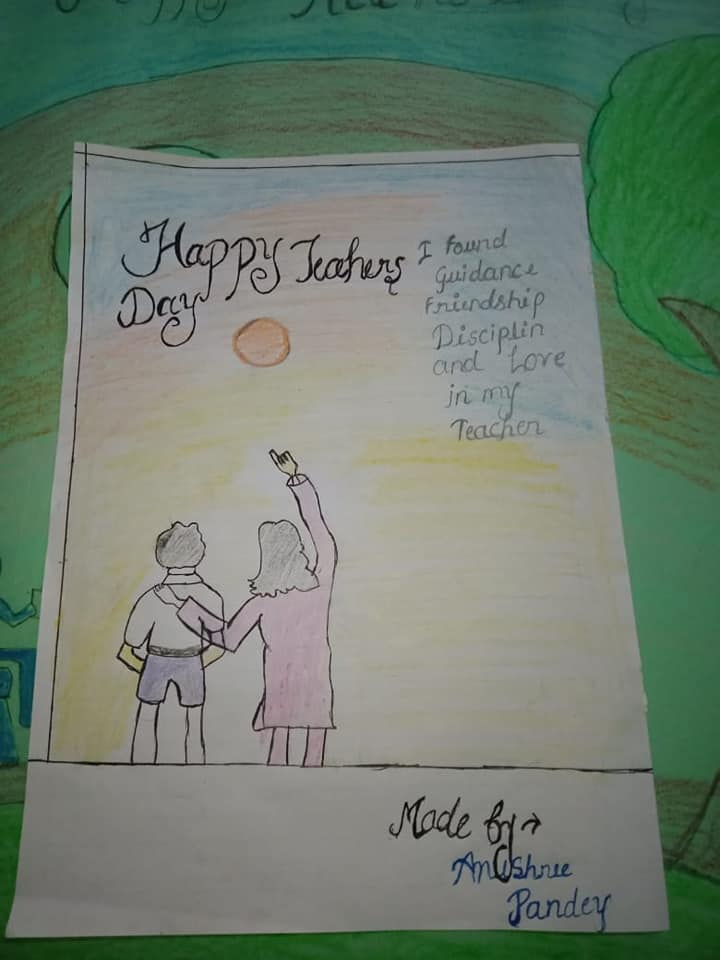 Happy Teahers
Day
I Found
Guidance
Friendship
Disciplin
and Love
in my
Teacher
Made by→
Anushree
Pandey